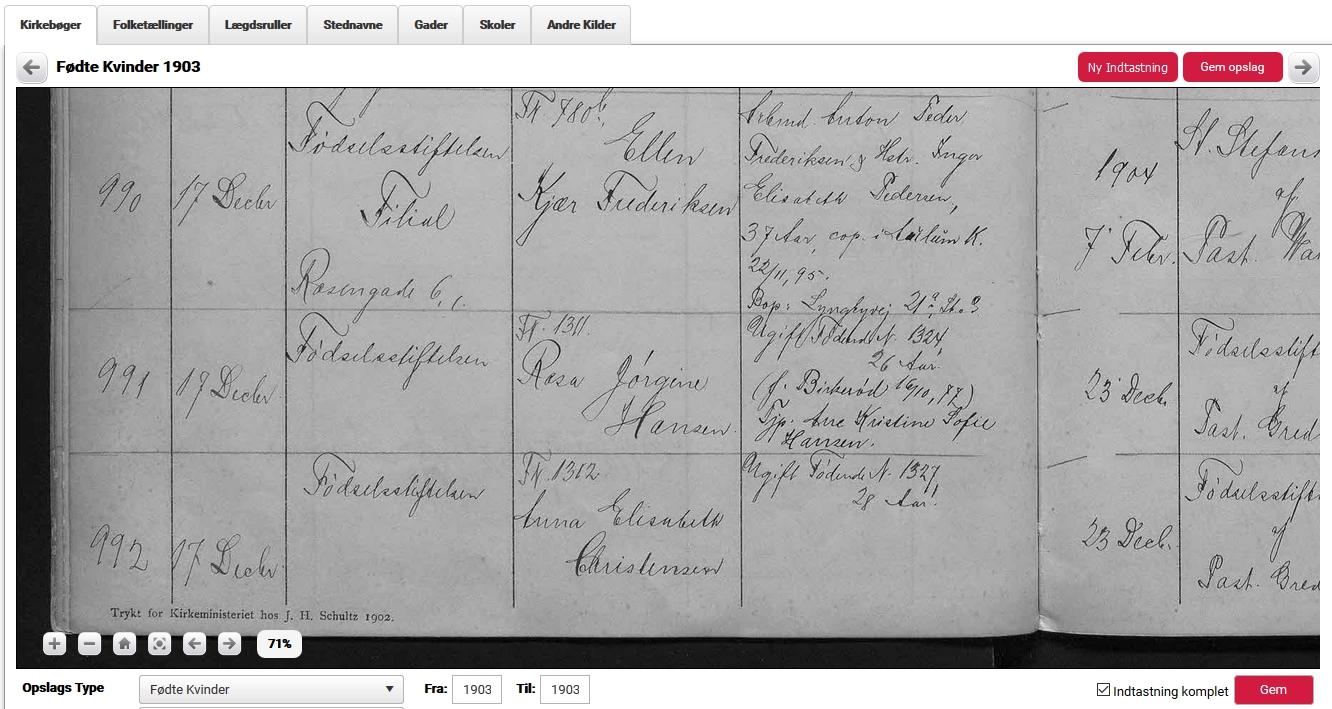 Kirkebøger Folketællinger Lægdsruller Stednavne Gader Skoler Andre Kilder
Fødte Kvinder 1903
Ny Indtastning Gem opslag
990
17 Decbr
Fødselsstiftelsen
Filial
Rosengade 6,
Fk. 780b.
Ellen
Kjær Frederiksen
Arbmd. Anton Peder
Frederiksen & Hstr. Inger
Elisabeth Pedersen,
37 Aar, cop. i K.
22/11, 95.
Bop: Lyngbyvej 21
1904
7 Febr.
St. Stefans
af
Past.
991
17 Decbr.
Fødselsstiftelsen
Fk. 1311.
Rosa Jörgine
Hansen.
Ugift Fødende N. 1324
26 Aar.
(f. Birkerød 16/10, 77)
Tjp. Ane Kristine Sofie
Hansen.
23 Decb.
Fødselsstift
af
Past. Gred
992
17 Decbr
Fødselsstiftelsen
Fk. 1312
Anna Elisabeth
Christensen
Ugift Fødende N. 1327
28 Aar.
23 Decb.
Fødselsstift
af
Past. Gred
Trykt for Kirkeministeriet hos J. H. Schultz 1902.
71%
Opslags Type Fødte Kvinder Fra: 1903 Til: 1903 Indtastning komplet Gem